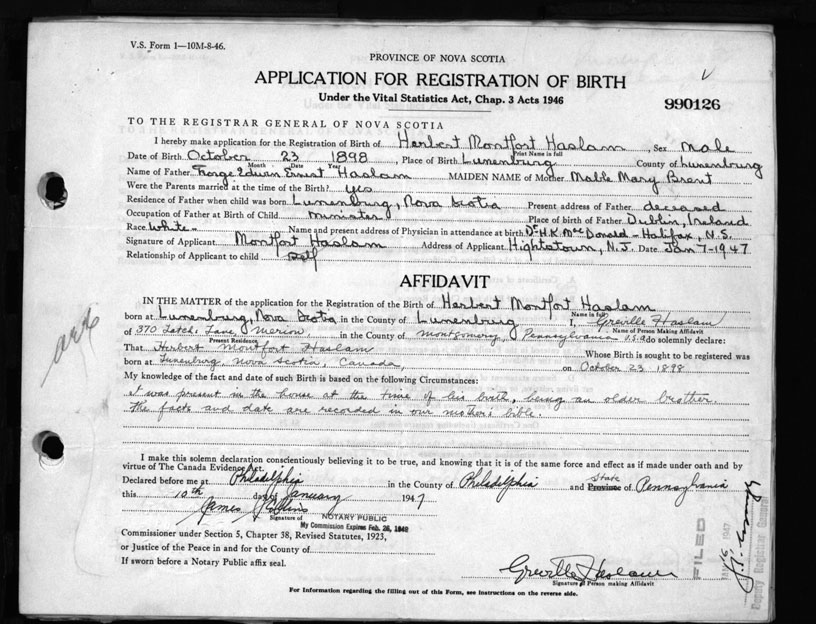 V.S. Form 1—10M-8-46.
PROVINCE OF NOVA SCOTIA
APPLICATION FOR REGISTRATION OF BIRTH
Under the Vital Statistics Act, Chap. 3 Acts 1946
990126
TO THE REGISTRAR GENERAL OF NOVA SCOTIA
I hereby make application for the Registration of Birth of Herbert Montfort Haslam, Sex Male
Print Name in full
Date of Birth October 23 1898, Place of Birth Lunenburg County of Lunenburg
Month Date Year
Name of Father George Edward Ernest Haslam MAIDEN NAME of Mother Mable Mary Brent
Were the Parents married at the time of the Birth? yes
Residence of Father when child was born Lunenburg, Nova Scotia Present address of Father deceased
Occupation of Father at Birth of Child minister Place of birth of Father Dublin, Ireland
Race White Name and present address of Physician in attendance at birth Dr. H.K. MacDonald - Halifax, N.S.
Signature of Applicant Montfort Haslam Address of Applicant Hightstown, N.J. Date Jan 7-1947
Relationship of Applicant to child self
AFFIDAVIT
IN THE MATTER of the application for the Registration of the Birth of Herbert Montfort Haslam
Name in full
born at Lunenburg, Nova Scotia in the County of Lunenburg I, Greville Haslam
Name of Person Making Affidavit
of 370 Lane, Merion in the County of Montgomery, Pennsylvania U.S.A. do solemnly declare:
Present Residence
That Herbert Montfort Haslam Whose Birth is sought to be registered was
born at Lunenburg Nova Scotia, Canada, on October 23 1898
My knowledge of the fact and date of such Birth is based on the following Circumstances:
I was present in the house at the time of his birth, being an older brother.
The facts and date are recorded in our mother's bible.
I make this solemn declaration conscientiously believing it to be true, and knowing that it is of the same force and effect as if made under oath and by
virtue of The Canada Evidence Act.
Declared before me at Philadelphia in the County of Philadelphia and State Province of Pennsylvania
this 10th day of January 1947
James Collins
Signature of NOTARY PUBLIC
My Commission Expires Feb.
Commissioner under Section 5, Chapter 38, Revised Statutes, 1923,
or Justice of the Peace in and for the County of
If sworn before a Notary Public affix seal.
Greville Haslam
Signature of Person making Affidavit
For Information regarding the filling out of this Form, see instructions on the reverse side.
FILED
1947
Deputy Registrar General